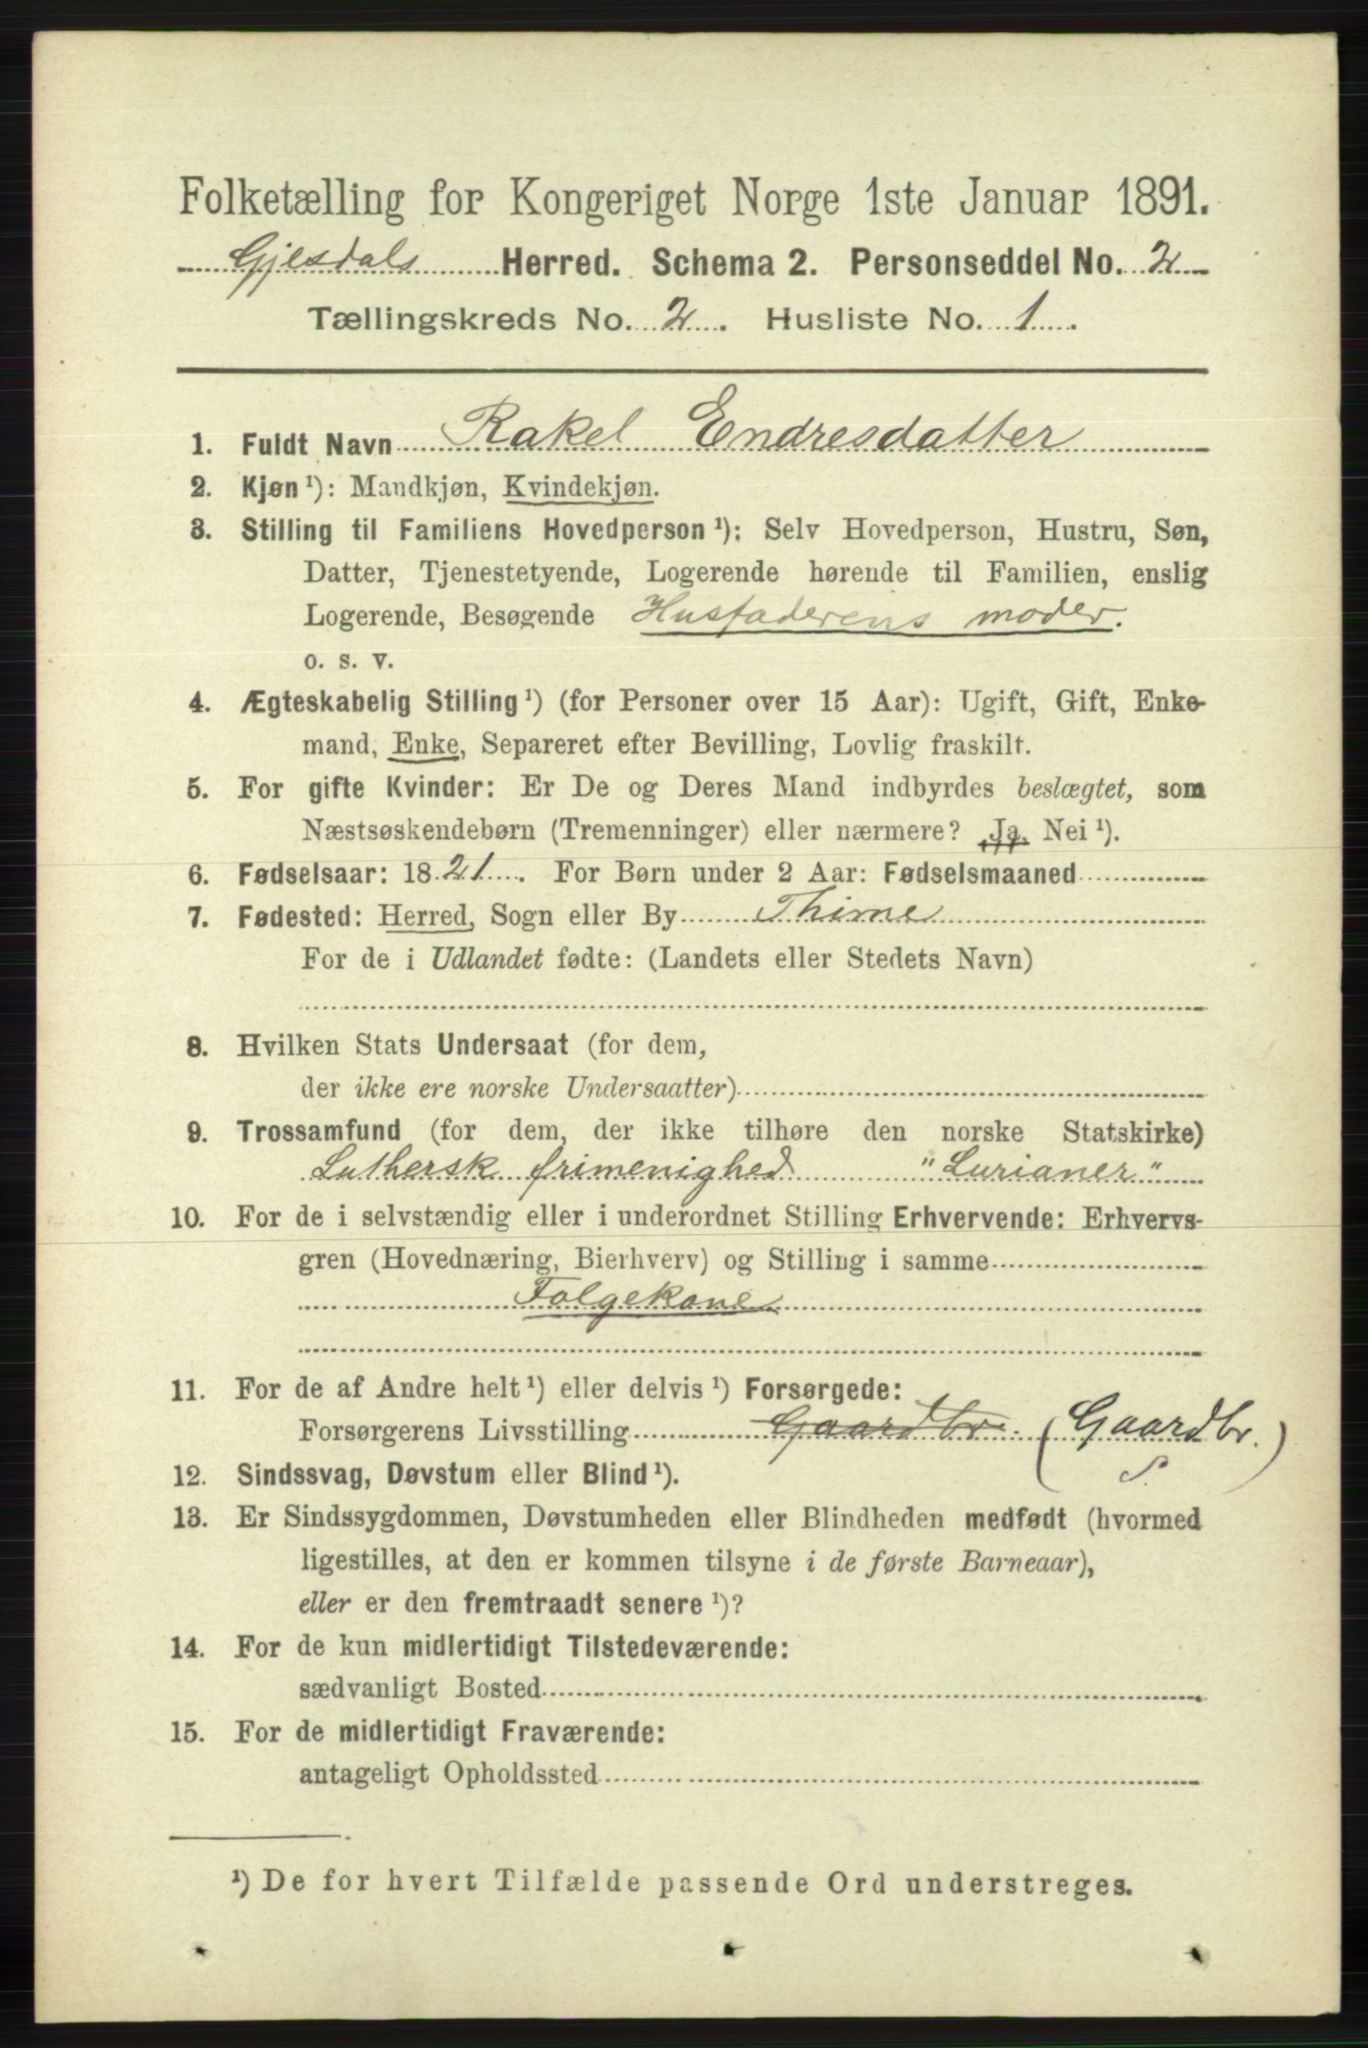 Folketælling for Kongeriget Norge 1ste Januar 1891.
Gjesdals Herred. Schema 2. Personseddel No. 2
Tællingskreds No. 2. Husliste No. 1.
1. Fuldt Navn Rakel Endresdatter
2. Kjøn ¹): Mandkjøn, Kvindekjøn.
3. Stilling til Familiens Hovedperson ¹): Selv Hovedperson, Hustru, Søn,
Datter, Tjenestetyende, Logerende hørende til Familien, enslig
Logerende, Besøgende Husfaderens moder.
o. s. v.
4. Ægteskabelig Stilling ¹) (for Personer over 15 Aar): Ugift, Gift, Enke-
mand, Enke, Separeret efter Bevilling, Lovlig fraskilt.
5. For gifte Kvinder: Er De og Deres Mand indbyrdes beslægtet, som
Næstsøskendebørn (Tremenninger) eller nærmere? Ja, Nei ¹).
6. Fødselsaar: 1821. For Børn under 2 Aar: Fødselsmaaned
7. Fødested: Herred, Sogn eller By Thime
For de i Udlandet fødte: (Landets eller Stedets Navn)
8. Hvilken Stats Undersaat (for dem,
der ikke ere norske Undersaatter)
9. Trossamfund (for dem, der ikke tilhøre den norske Statskirke)
Luthersk frimenighed "Lurianer"
10. For de i selvstændig eller i underordnet Stilling Erhvervende: Erhvervs-
gren (Hovednæring, Bierhverv) og Stilling i samme
Folgekone
11. For de af Andre helt ¹) eller delvis ¹) Forsørgede:
Forsørgerens Livsstilling Gaardbr. (Gaardbr.)
S.
12. Sindssvag, Døvstum eller Blind ¹).
13. Er Sindssygdommen, Døvstumheden eller Blindheden medfødt (hvormed
ligestilles, at den er kommen tilsyne i de første Barneaar),
eller er den fremtraadt senere ¹)?
14. For de kun midlertidigt Tilstedeværende:
sædvanligt Bosted
15. For de midlertidigt Fraværende:
antageligt Opholdssted
¹) De for hvert Tilfælde passende Ord understreges.